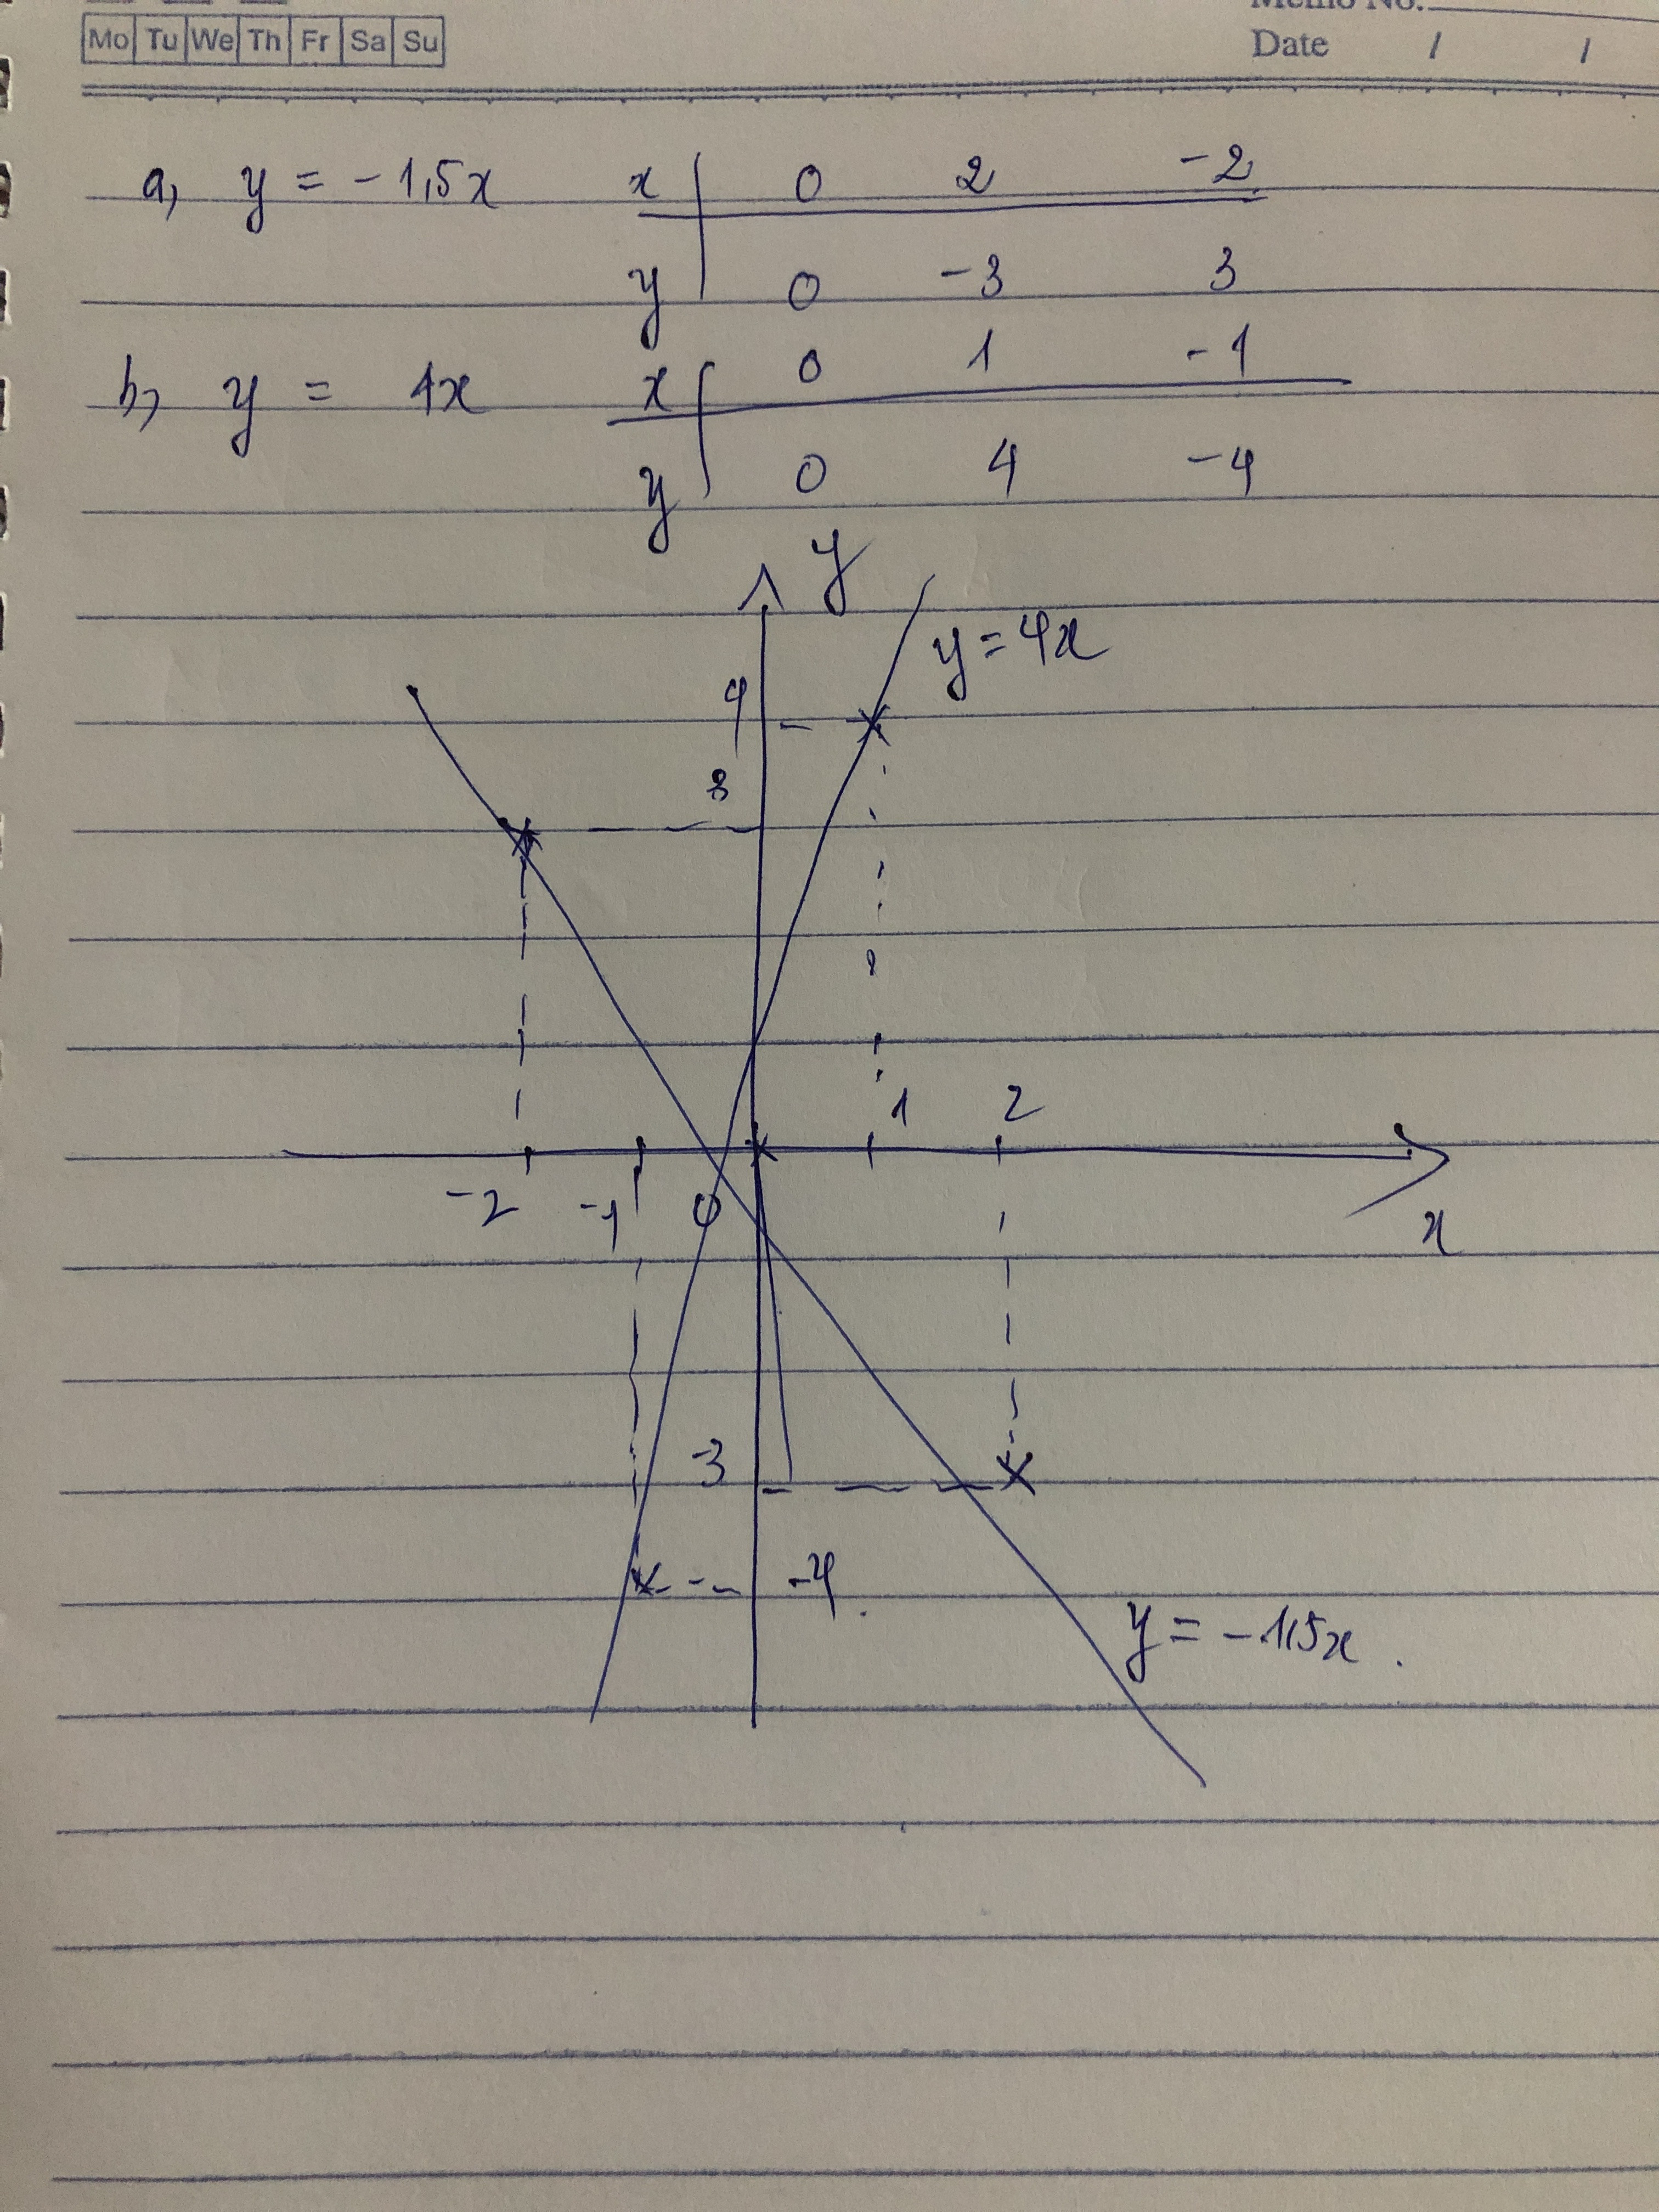 Memo No.
Mo Tu We Th Fr Sa Su
Date / /
a, y = -1,5x x 0 2 -2
y 0 -3 3
b, y = 4x x 0 1 -1
y 0 4 -4
y
y = 4x
4
3
1 2
-2 -1 0 x
-3
-4.
y = -1,5x.